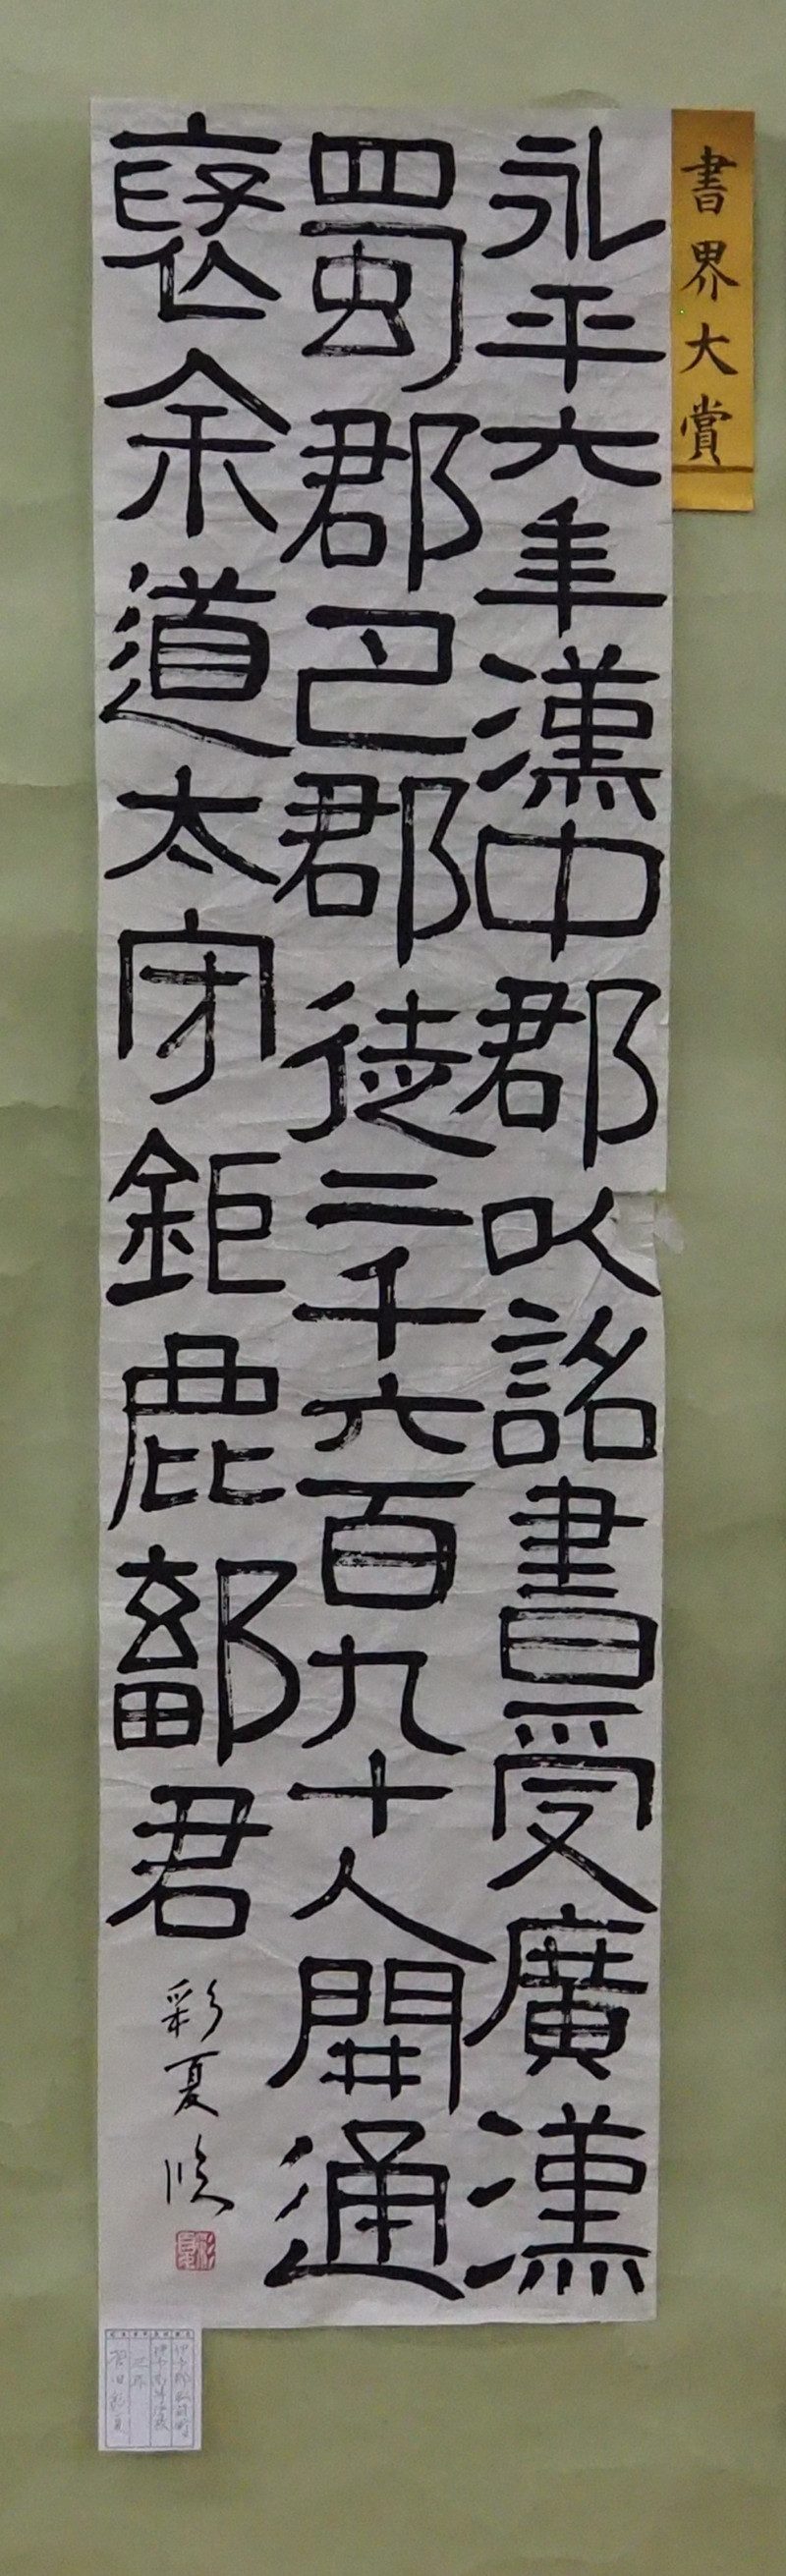 書界大賞
永平六年漢中郡以詔書受廣漢
蜀郡巴郡徒二千六百九十人開通
褒余道太守鉅鹿鄐君
彩夏臨
彩夏